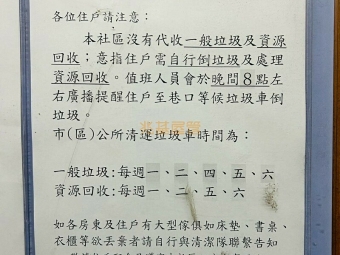 各位住戶請注意：
本社區沒有代收一般垃圾及資源
回收；意指住戶需自行倒垃圾及處理
資源回收。值班人員會於晚間8點左
右廣播提醒住戶至巷口等候垃圾車倒
垃圾。
市(區)公所清運垃圾車時間為：
一般垃圾：每週一、二、四、五、六
資源回收：每週一、二、五、六
如各房東及住戶有大型傢俱如床墊、書桌、
衣櫃等欲丟棄者請自行與清潔隊聯繫告知